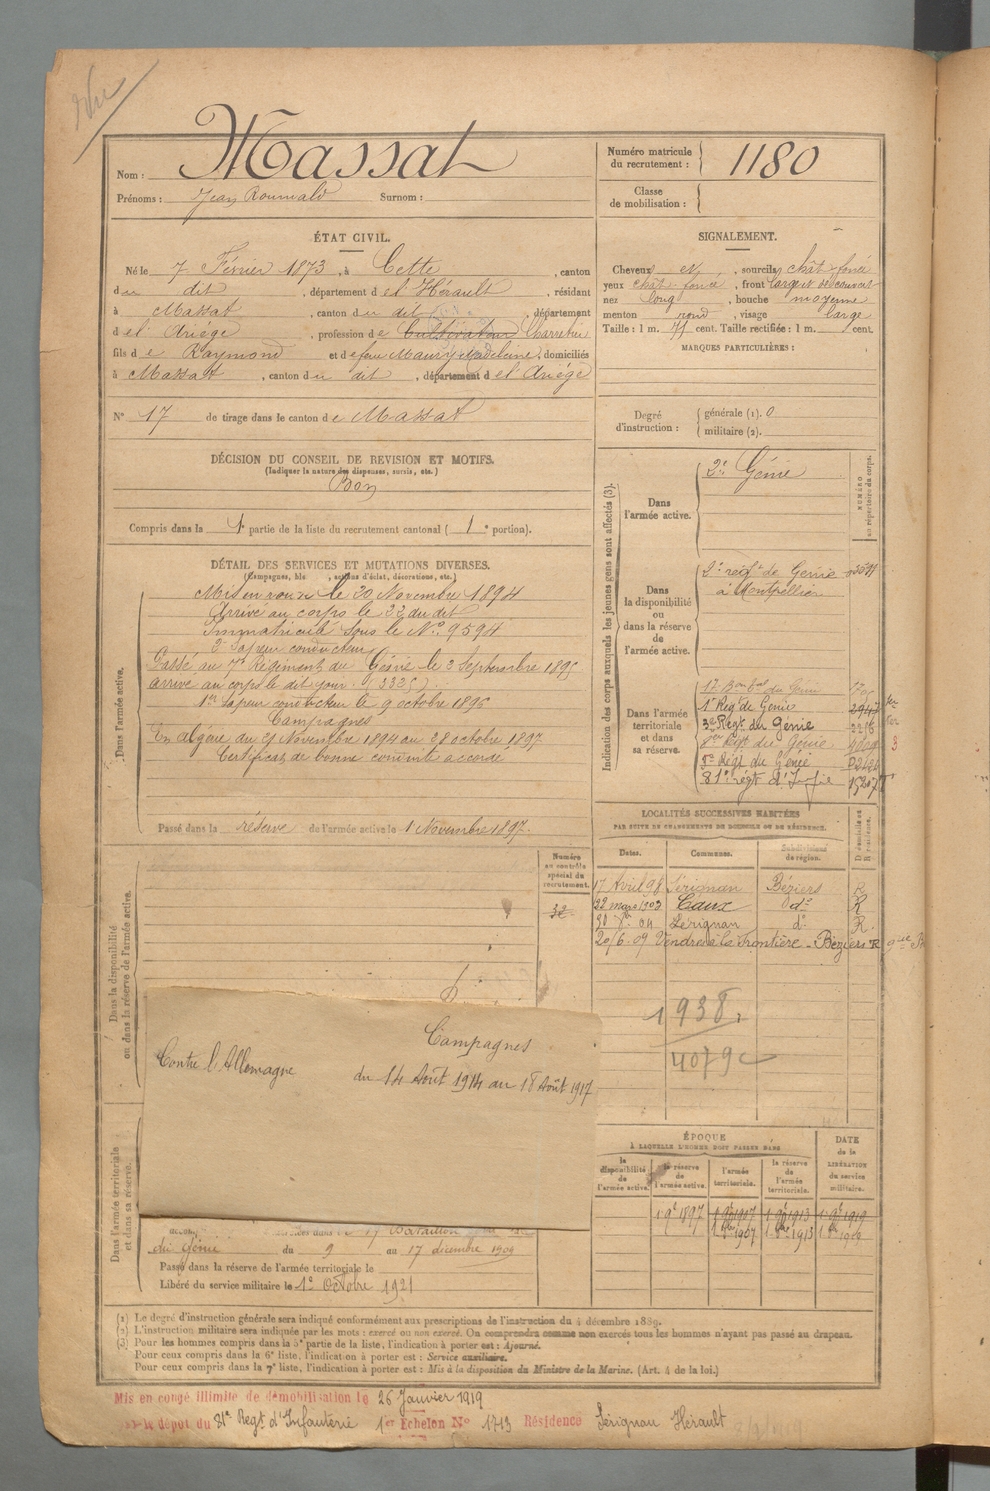 Nom : Massat
Prénoms : Jean Romuald Surnom :
Numéro matricule du recrutement : 1180
Classe de mobilisation :
ÉTAT CIVIL.
Né le 7 Février 1873, à Cette, canton
du dit, département de l'Hérault, résidant
à Massat, canton du dit, département
de l'Ariège, profession de Cultivateur Charretier
fils de Raymond et de feue Maury Madeleine, domiciliés
à Massat, canton du dit, département de l'Ariège
N° 17 de tirage dans le canton de Massat
DÉCISION DU CONSEIL DE REVISION ET MOTIFS.
(Indiquer la nature des dispenses, sursis, etc.)
Bon
Compris dans la 1e partie de la liste du recrutement cantonal (1e portion).
SIGNALEMENT.
Cheveux et, sourcils chât-foncé
yeux chât-foncé, front large et découvert
nez long, bouche moyenne
menton rond, visage large
Taille : 1 m. 71 cent. Taille rectifiée : 1 m. cent.
MARQUES PARTICULIÈRES :
Degré d'instruction : générale (1). 0
militaire (2).
DÉTAIL DES SERVICES ET MUTATIONS DIVERSES.
(Campagnes, actions d'éclat, décorations, etc.)
Dans l'armée active.
Mis en route le 20 Novembre 1894
Arrivé au corps le 22 du dit
Immatriculé sous le N° 9594
2e Sapeur conducteur
Passé au 7e Régiment du Génie le 3 Septembre 1895
arrivé au corps le dit jour (3325).
1er Sapeur conducteur le 9 octobre 1896
Campagnes
En Algérie du 21 Novembre 1894 au 28 octobre 1897
Certificat de bonne conduite accordé
Passé dans la réserve de l'armée active le 1 Novembre 1897.
Indication des corps auxquels les jeunes gens sont affectés (3).
NUMÉRO au répertoire du corps.
Dans l'armée active.
2e Génie
Dans la disponibilité ou dans la réserve de l'armée active.
2e régt de Génie
à Montpellier
Dans l'armée territoriale et dans sa réserve.
17e Bon tal du Génie
1er Régt de Génie
3e Régt du Génie
Régt du Génie
5e Régt du Génie
81e régt d'Infie
LOCALITÉS SUCCESSIVES HABITÉES
PAR SUITE DE CHANGEMENTS DE DOMICILE OU DE RÉSIDENCE.
Dates. Communes. Subdivisions de région. D domicile ou R résidence.
17 Avril 98 Sérignan Béziers R
22 mars 1902 Caux do R
30 04 Sérignan do R.
20/6-09 Vendres à la Frontière - Béziers R
Numéro au contrôle spécial du recrutement.
32
Dans la disponibilité ou dans la réserve de l'armée active.
1938
4079
Campagnes
Contre l'Allemagne du 14 Août 1914 au 18 Août 1917
Dans l'armée territoriale et dans sa réserve.
17e Bataillon
du Génie du 9 au 17 décembre 1909
Passé dans la réserve de l'armée territoriale le
Libéré du service militaire le 1er Octobre 1921
ÉPOQUE
À LAQUELLE L'HOMME DOIT PASSER DANS
la disponibilité de l'armée active. la réserve de l'armée active. l'armée territoriale. la réserve de l'armée territoriale. DATE de la LIBÉRATION du service militaire.
1 9e 1897 1 9b 1907 1 9b 1913 1 9b 1919
(1) Le degré d'instruction générale sera indiqué conformément aux prescriptions de l'instruction du 4 décembre 1889.
(2) L'instruction militaire sera indiquée par les mots : exercé ou non exercé. On comprendra comme non exercés tous les hommes n'ayant pas passé au drapeau.
(3) Pour les hommes compris dans la 5e partie de la liste, l'indication à porter est : Ajourné.
Pour ceux compris dans la 6e liste, l'indication à porter est : Service auxiliaire.
Pour ceux compris dans la 7e liste, l'indication à porter est : Mis à la disposition du Ministre de la Marine. (Art. 4 de la loi.)
Mis en congé illimité de démobilisation le 26 Janvier 1919
dépôt du 81e Regt d'Infanterie 1er Echelon N° 1713 Résidence Sérignan Hérault